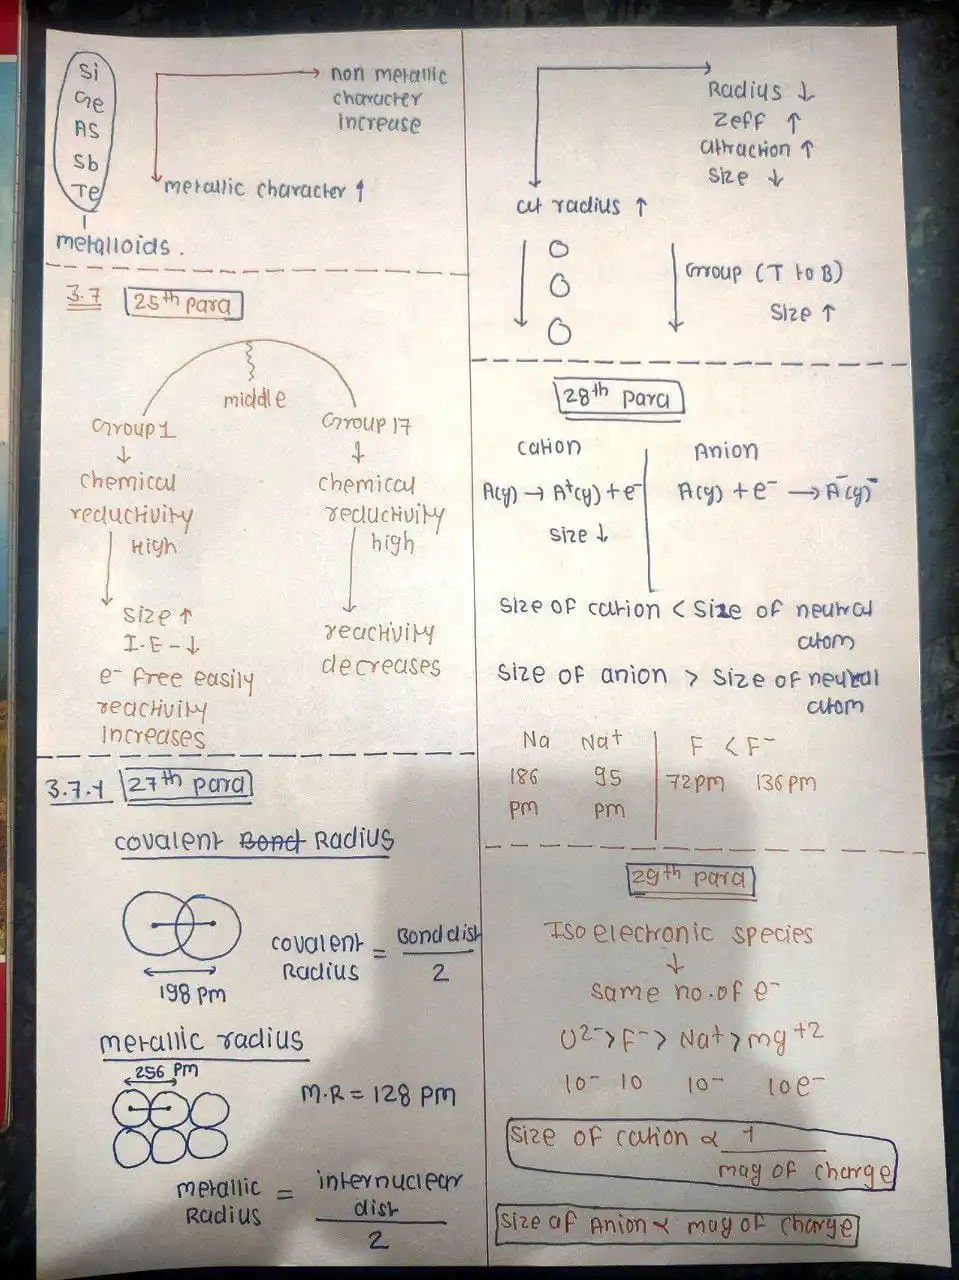 Si
Ge
AS
Sb
Te
metalloids.
non metallic
character
increase
metallic character ↑
3.7 25th para
middle
Group 1
↓
chemical
reductivity
High
Size ↑
I.E - ↓
e- free easily
reactivity
increases
Group 17
↓
chemical
reductivity
high
reactivity
decreases
3.7.1 27th para
covalent Bond Radius
198 pm
covalent Radius = Bond dist / 2
metallic radius
256 pm
M.R = 128 pm
metallic Radius = internuclear dist / 2
Radius ↓
Zeff ↑
attraction ↑
Size ↓
at radius ↑
Group (T to B)
Size ↑
28th para
cation
A(g) → A+(g) + e-
size ↓
Anion
A(g) + e- → A-(g)-
Size of cation < Size of neutral
atom
Size of anion > Size of neutral
atom
Na Na+
186 95
pm pm
F < F-
72pm 136pm
29th para
Iso electronic species
↓
same no. of e-
O2- > F- > Na+ > mg+2
10- 10 10- 10e-
Size of cation ∝ 1 / mag of charge
Size of Anion ∝ mag of charge